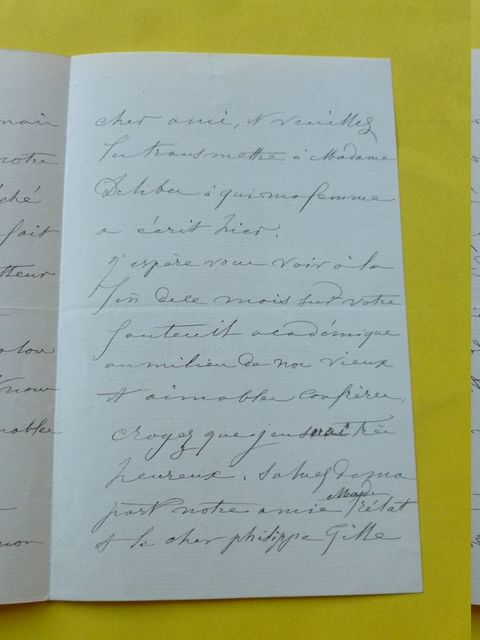 nair
notre
ché
fait
tteur
mables
cher ami, & veuillez
les transmettre à Madame
Delibes à qui ma femme
a écrit hier.
J'espère vous voir à la
fin de le mois sur votre
fauteuil académique
au milieu de nos vieux
et aimables confrères,
croyez que j'en serai très
heureux. Saluez de ma
part notre amie Mad. Rétat
& le cher philippe Gille